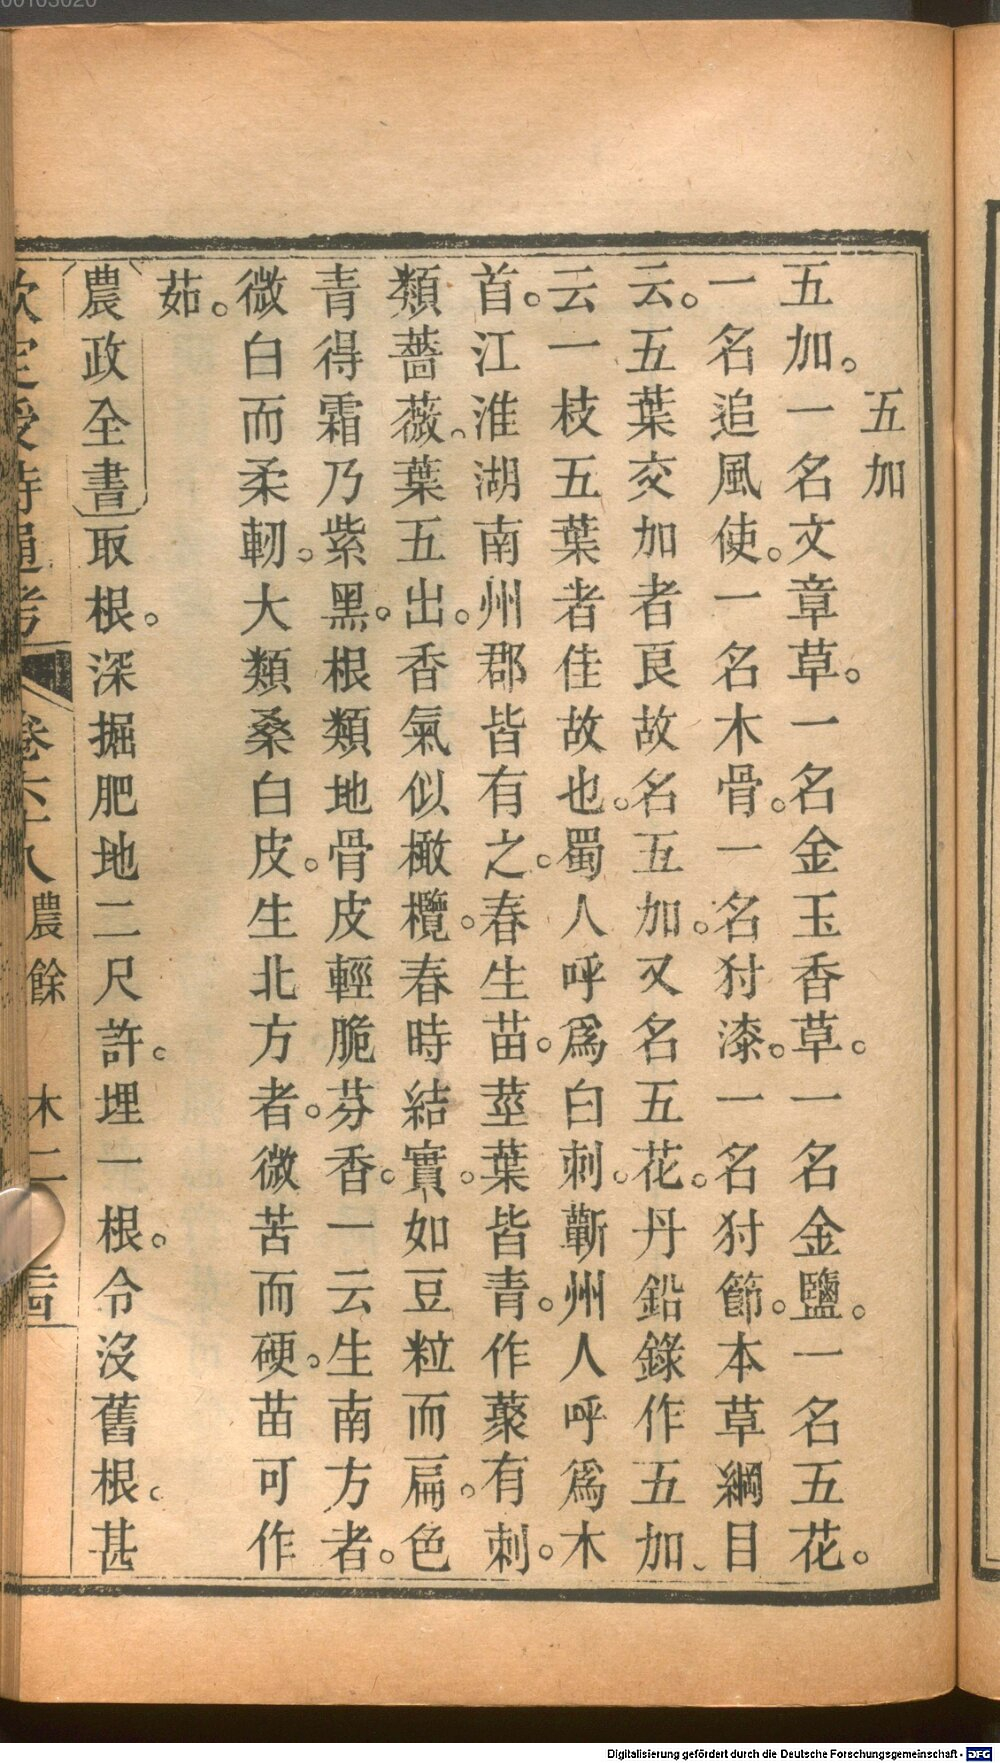 五加
五加。一名文章草。一名金玉香草。一名金鹽。一名五花。
一名追風使。一名木骨。一名犲漆。一名犲節。本草綱目
云。五葉交加者良故名五加。又名五花。丹鉛錄作五加、
云一枝五葉者佳故也。蜀人呼爲白刺。蘄州人呼爲木
首。江淮湖南州郡皆有之。春生苗。莖葉皆青。作藂有刺。
類薔薇。葉五出。香氣似橄欖。春時結實。如豆粒而扁。色
青得霜乃紫黑。根類地骨皮輕脆芬香。一云生南方者。
微白而柔軔。大類桑白皮。生北方者。微苦而硬。苗可作
茹。
農政全書取根。深掘肥地二尺許。埋一根。令沒舊根。甚
欽定授時通考 卷六十八 農餘 木二
Digitalisierung gefördert durch die Deutsche Forschungsgemeinschaft - DFG